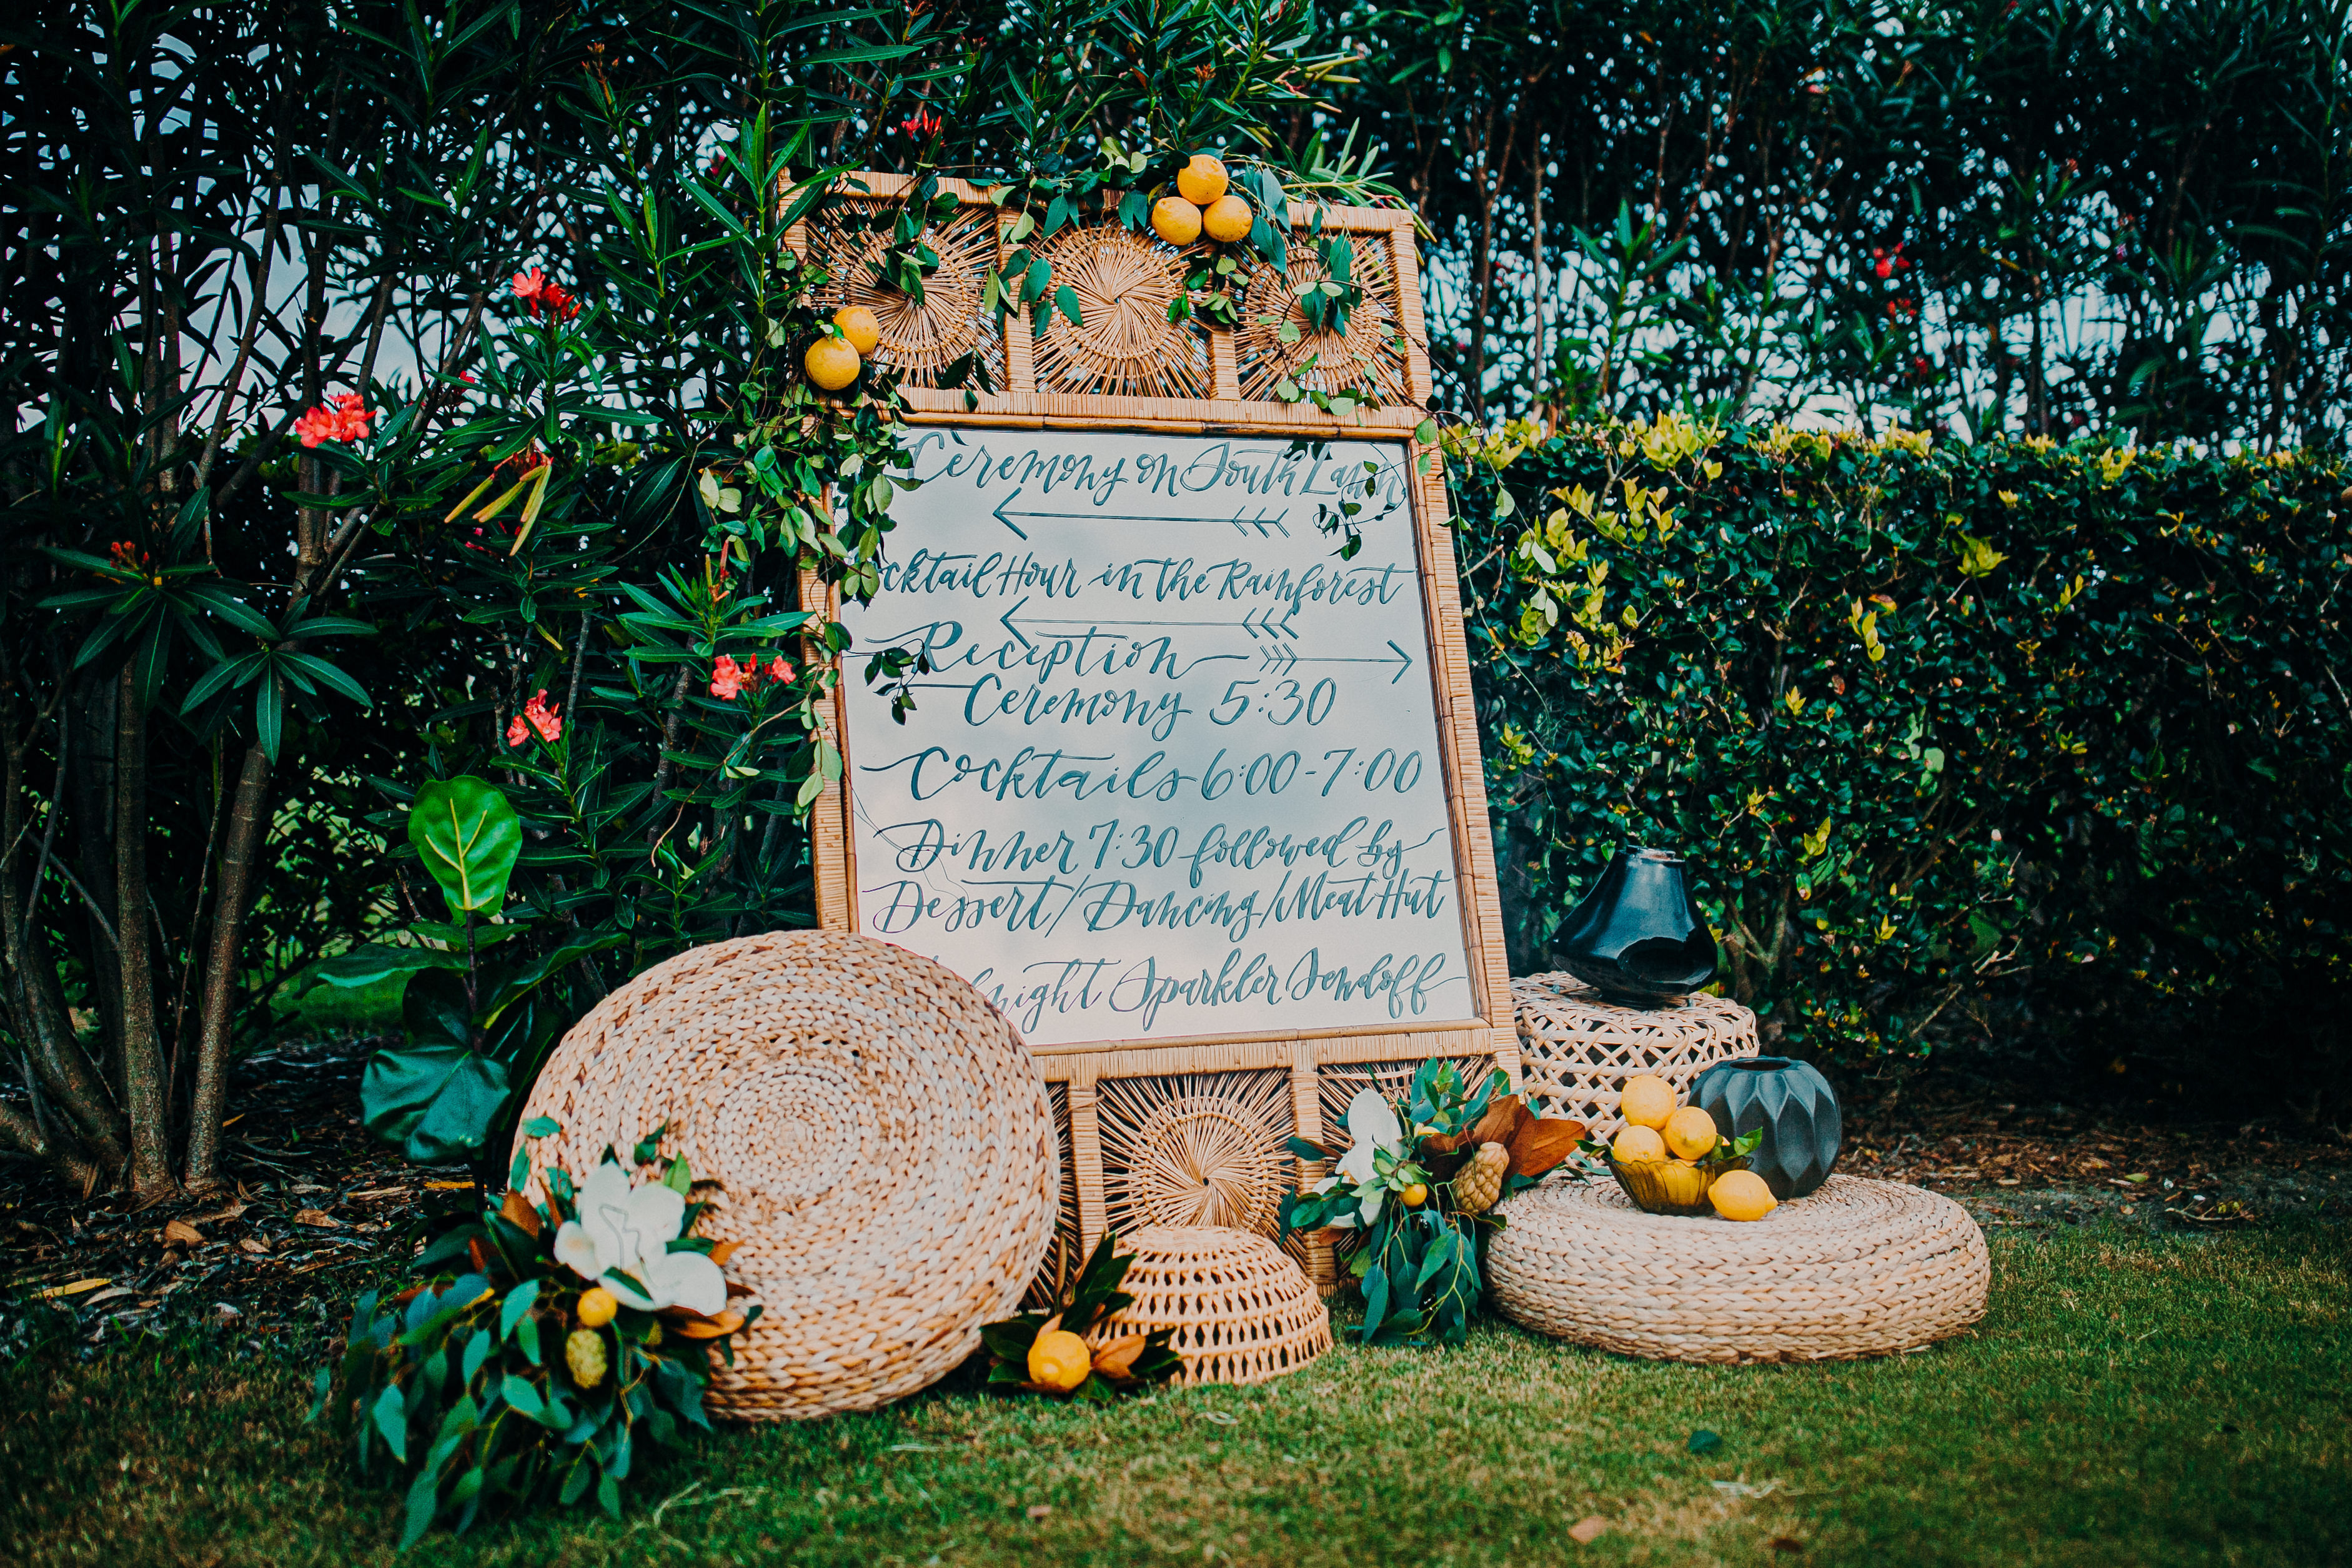 Ceremony on South Lawn
Cocktail Hour in the Rainforest
Reception
Ceremony 5:30
Cocktails 6:00-7:00
Dinner 7:30 followed by
Dessert/Dancing/Meat Hut
Midnight Sparkler Sendoff